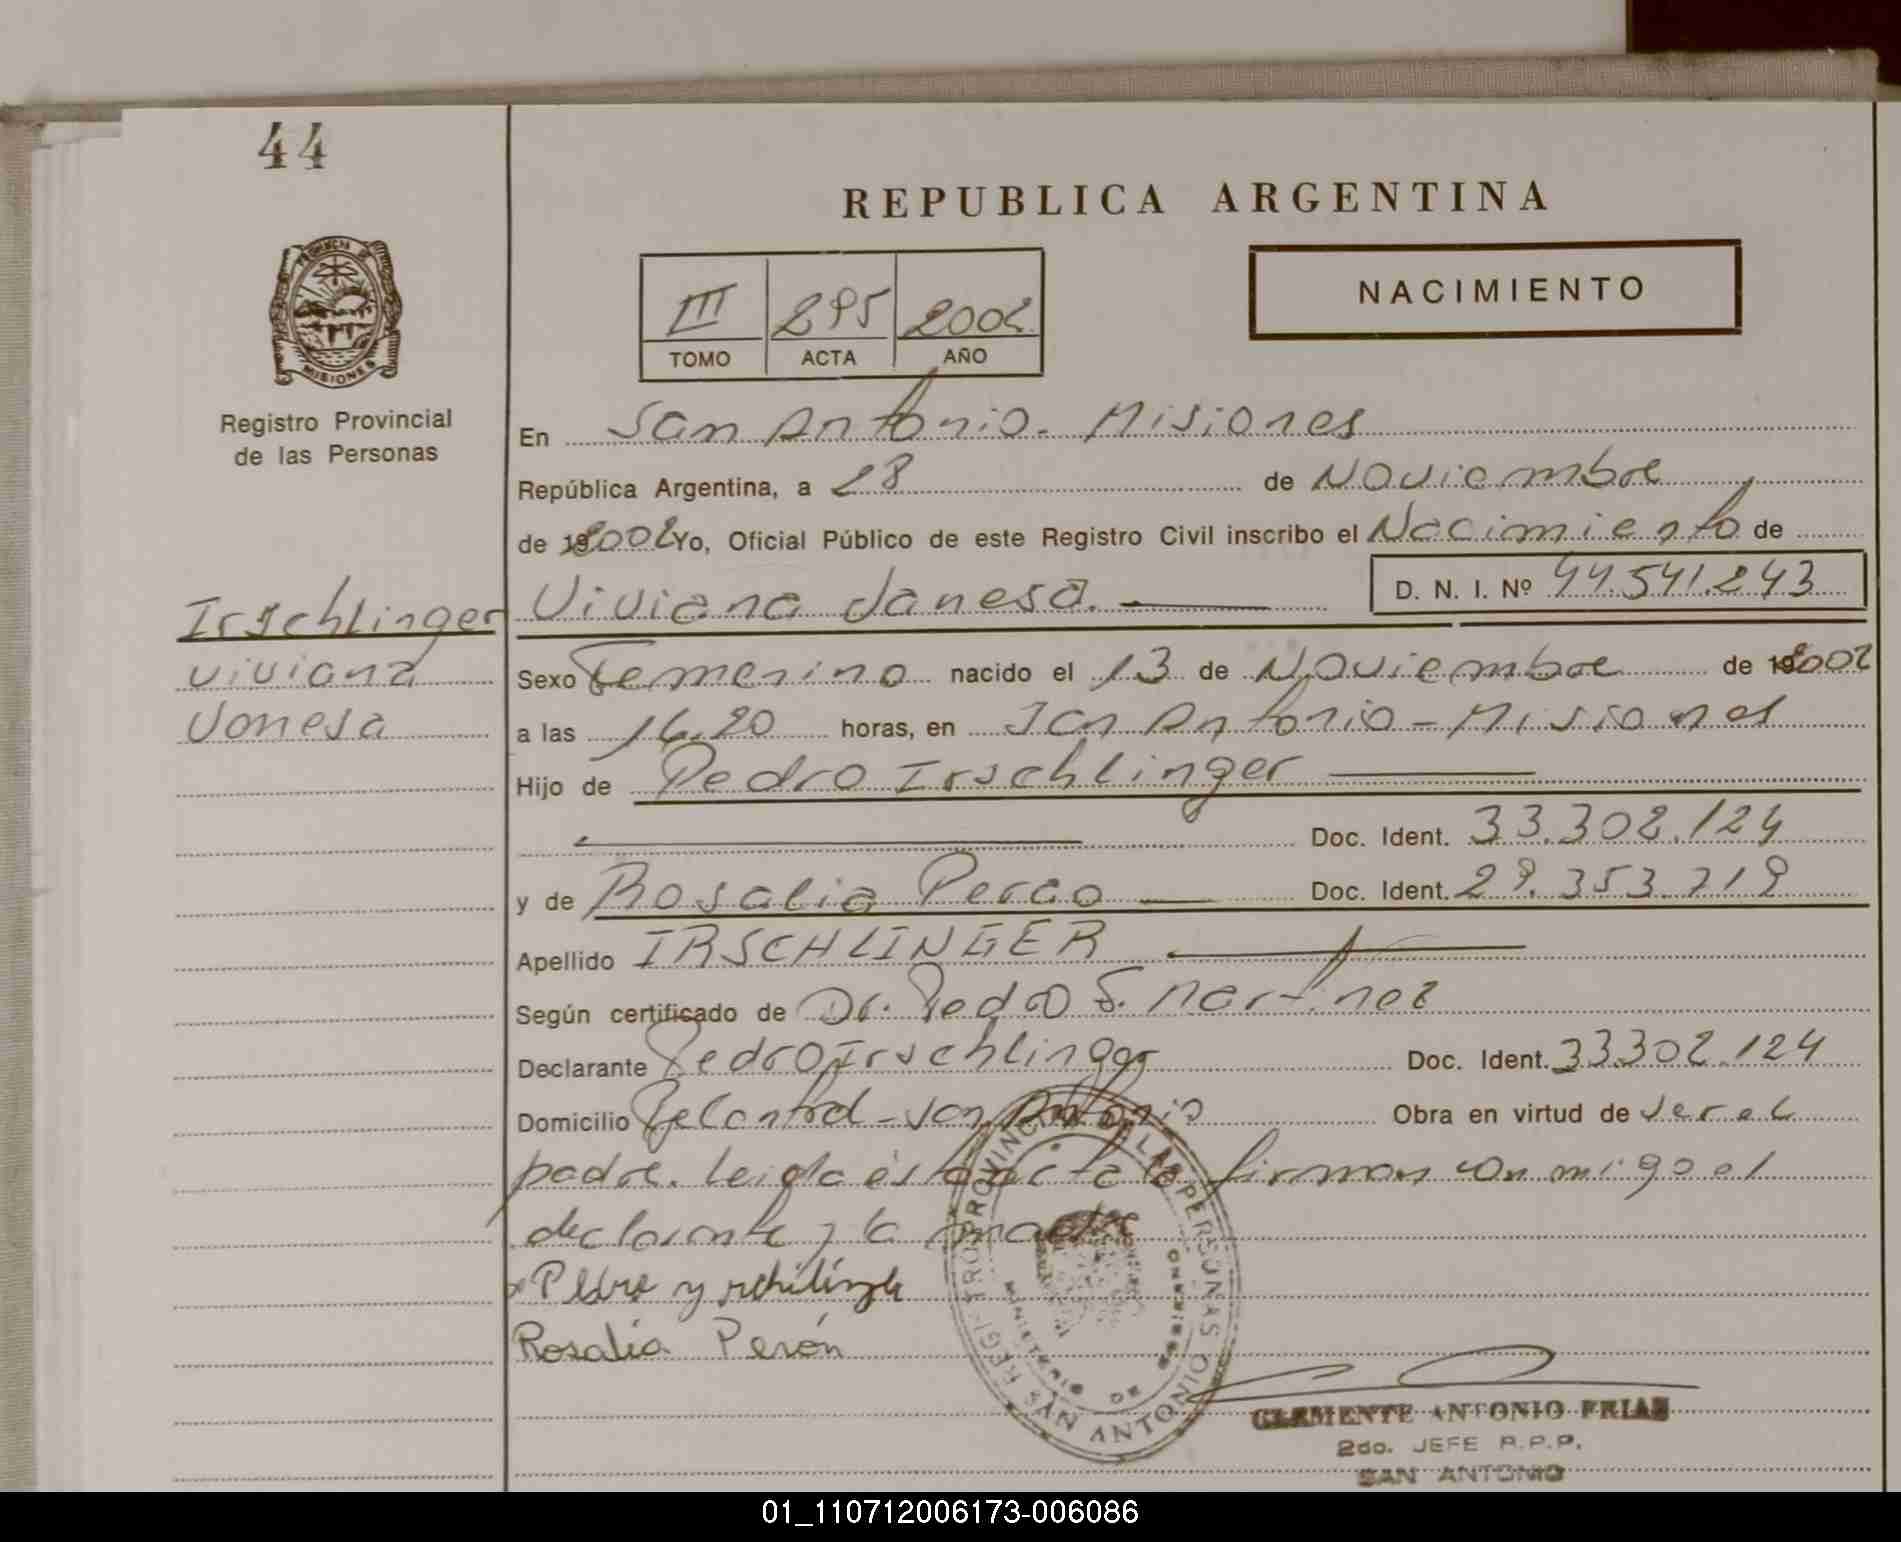 44
REPUBLICA ARGENTINA
PROVINCIA DE
MISIONES
Registro Provincial
de las Personas
III 295 2002
TOMO ACTA AÑO
NACIMIENTO
En San Antonio - Misiones
República Argentina, a 28 de Noviembre
de 2002 Yo, Oficial Público de este Registro Civil inscribo el Nacimiento de
Viviana Vanesa. D. N. I. Nº 44.541.243
Irschlinger
Viviana
Vanesa
Sexo Femenino nacido el 13 de Noviembre de 2002
a las 16.20 horas, en San Antonio - Misiones
Hijo de Pedro Irschlinger
Doc. Ident. 33.302.124
y de Rosalia Doc. Ident. 29.353.719
Apellido IRSCHLINGER
Según certificado de Dr. Pedro S. Martinez
Declarante Pedro Irschlinger Doc. Ident. 33.302.124
Domicilio - San Antonio Obra en virtud de ser el
padre. Leida ésta acta la firman conmigo el
declarante y la madre
Pedro
Rosalia Perón
SAN ANTONIO
CLEMENTE ANTONIO FRIAS
2do. JEFE R.P.P.
SAN ANTONIO
01_110712006173-006086